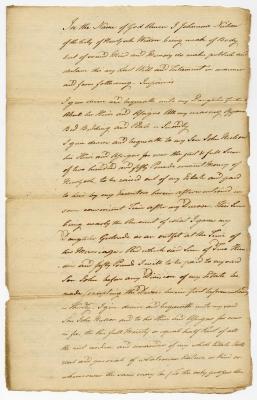 In the Name of God Amen I Johannah
of the City of New York Widow being weak of Body
but of sound Mind and Memory do make publish and
declare this my last Will and Testament in manner
and form following
I give devise and bequeath unto my Daughter
her Heirs and Assigns All my wearing Apparel
Bed Bedding and
I give devise and bequeath to my Son John
his Heirs and Assigns for ever the just & full Sum
of two hundred and fifty Pounds current money of
New York to be raised out of my Estate and paid
to him by my Executors herein after named in
some convenient Time after my Decease This Sum
being nearly the Amount of what I gave my
Daughter Gertrude as an outfit at the Time of
her Marriage which said Sum of Two Hundred
and fifty Pounds I will to be paid to my said
Son John before any Division of my Estate be
made
I give devise and bequeath unto my said
Son John and to his Heirs and Assigns for ever
the full Moiety or equal half Part of all
the rest residue and remainder of my whole Estate both
real and personal of whatsoever Nature or Kind or
wheresoever the same may be